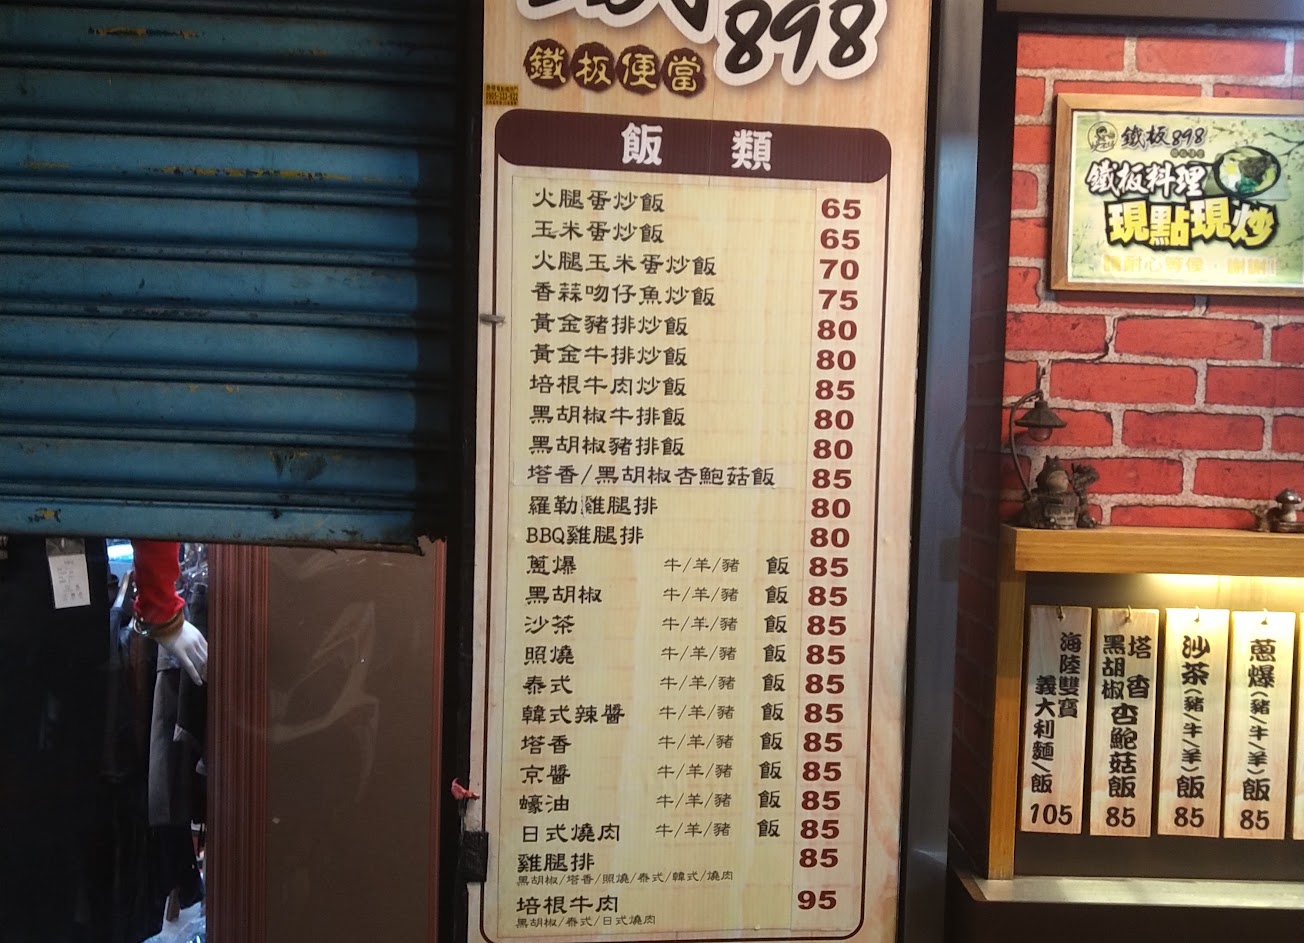 898
鐵板便當
飯 類
火腿蛋炒飯 65
玉米蛋炒飯 65
火腿玉米蛋炒飯 70
香蒜吻仔魚炒飯 75
黃金豬排炒飯 80
黃金牛排炒飯 80
培根牛肉炒飯 85
黑胡椒牛排飯 80
黑胡椒豬排飯 80
塔香/黑胡椒杏鮑菇飯 85
羅勒雞腿排 80
BBQ雞腿排 80
蔥爆 牛/羊/豬 飯 85
黑胡椒 牛/羊/豬 飯 85
沙茶 牛/羊/豬 飯 85
照燒 牛/羊/豬 飯 85
泰式 牛/羊/豬 飯 85
韓式辣醬 牛/羊/豬 飯 85
塔香 牛/羊/豬 飯 85
京醬 牛/羊/豬 飯 85
蠔油 牛/羊/豬 飯 85
日式燒肉 牛/羊/豬 飯 85
雞腿排 85
黑胡椒/塔香/照燒/泰式/韓式/燒肉
培根牛肉 95
黑胡椒/泰式/日式燒肉
鐵板898
鐵板料理
現點現炒
請耐心等候，謝謝!
海陸雙寶
義大利麵/飯
105
塔香
黑胡椒杏鮑菇飯
85
沙茶(豬/牛/羊)飯
85
蔥爆(豬/牛/羊)飯
85